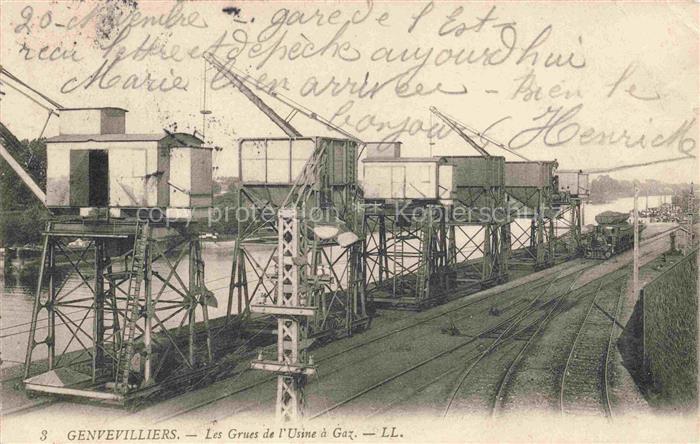 20 Novembre - gare de l'Est -
reçu lettre et depèche aujourd'hui
Marie bien arrivée - Bien le
bonjour
Henrick
copy protection Kopierschutz
3 GENVEVILLIERS. - Les Grues de l'Usine à Gaz. - LL.